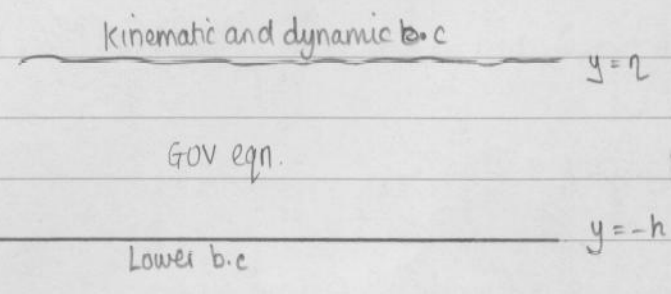 Kinematic and dynamic b.c
y = η
GOV eqn.
y = -h
Lower b.c